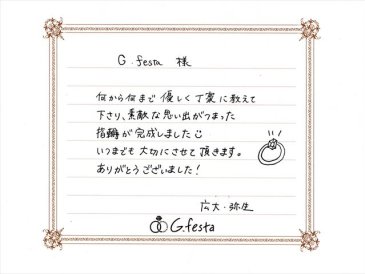 G.festa 様
何から何まで優しく丁寧に教えて
下さり、素敵な思い出がつまった
指輪が完成しました
いつまでも大切にさせて頂きます。
ありがとうございました!
広大・弥生
G.festa